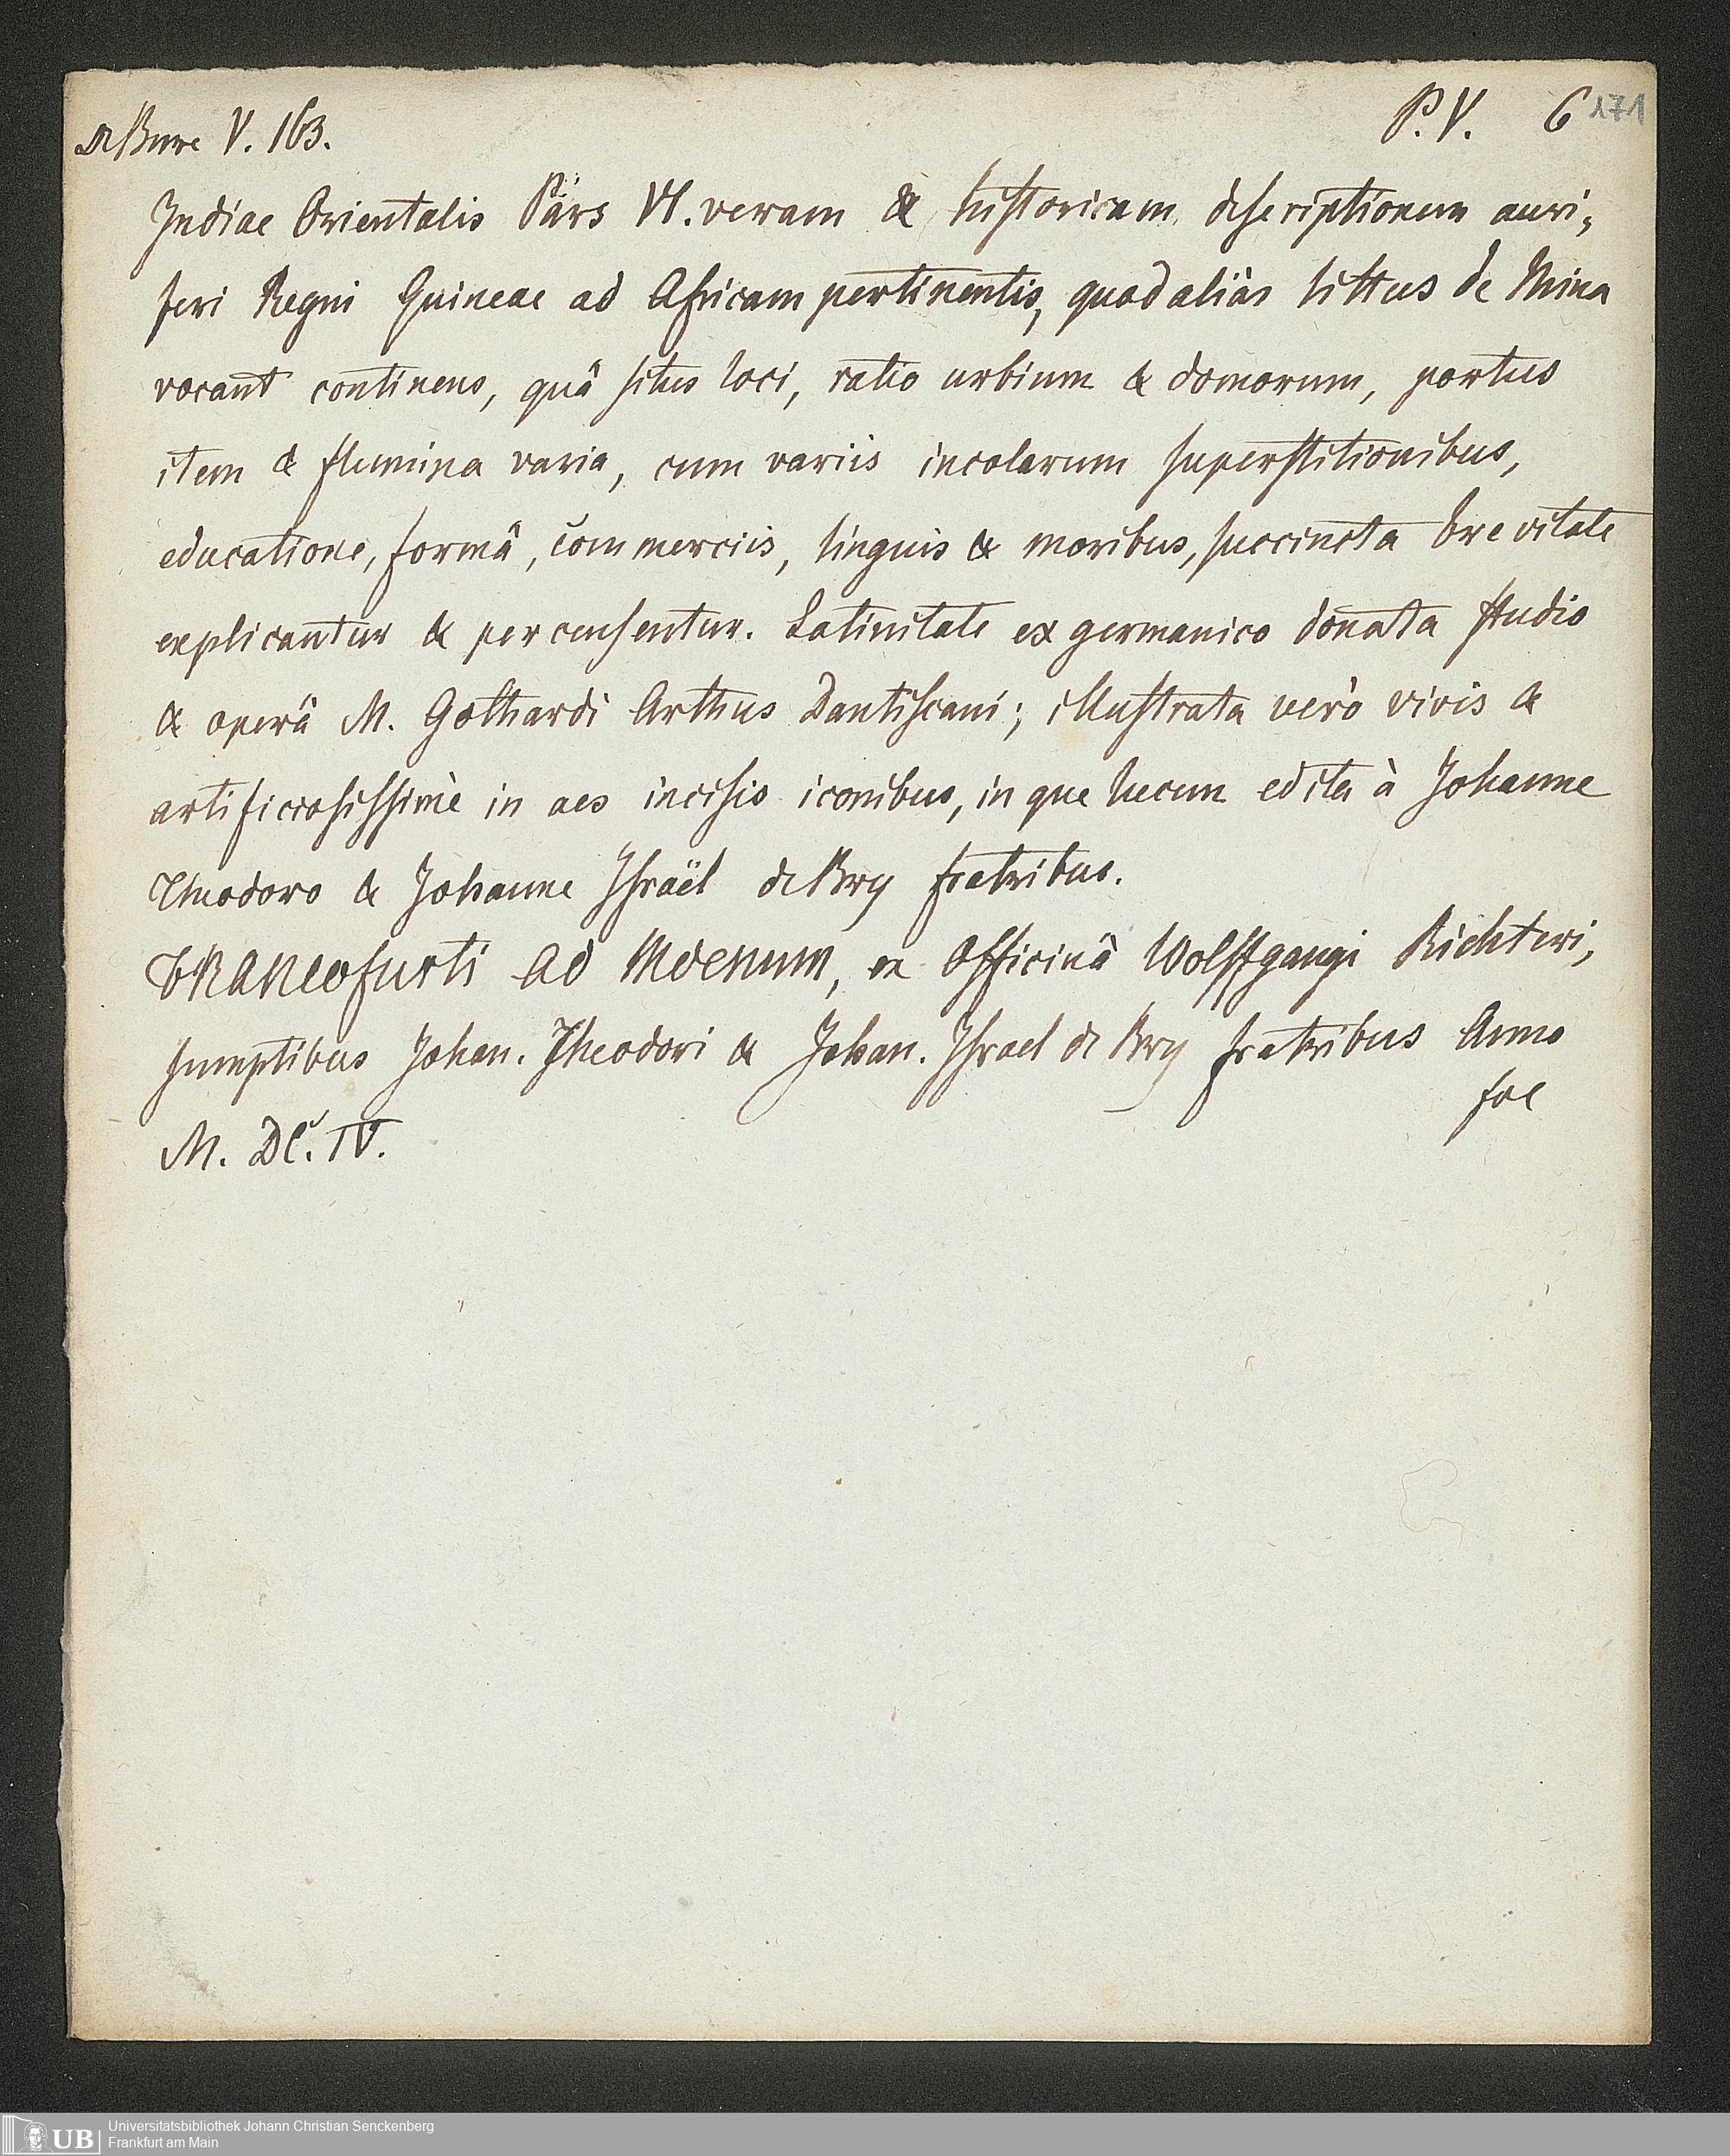 deBure V. 163.
P. V. 6 171
Indiae Orientalis Pars VI. veram & historicam descriptionem auri-
feri Regni Guineae ad Africam pertinentis, quod aliàs littus de Mina
vocant continens, quâ situs loci, ratio urbium & domorum, portus
item & flumina varia, cum variis incolarum superstitionibus,
educatione, formâ, commerciis, linguis & moribus, succincta brevitate
explicantur & percensentur. Latinitate ex germanico donata studio
& operâ M. Gothardi Arthus Dantiscani; illustrata verò vivis &
artificiosissimè in aes incisis iconibus, inque lucem edita à Johanne
Theodoro & Johanne Israël de Bry fratribus.
FRANCofurti ad Moenum, ex Officinâ Wolffgangi Richteri,
sumptibus Johan. Theodori & Johan. Israel de Bry fratribus Anno
M. DC. IV.
fol
UB Universitätsbibliothek Johann Christian Senckenberg
Frankfurt am Main